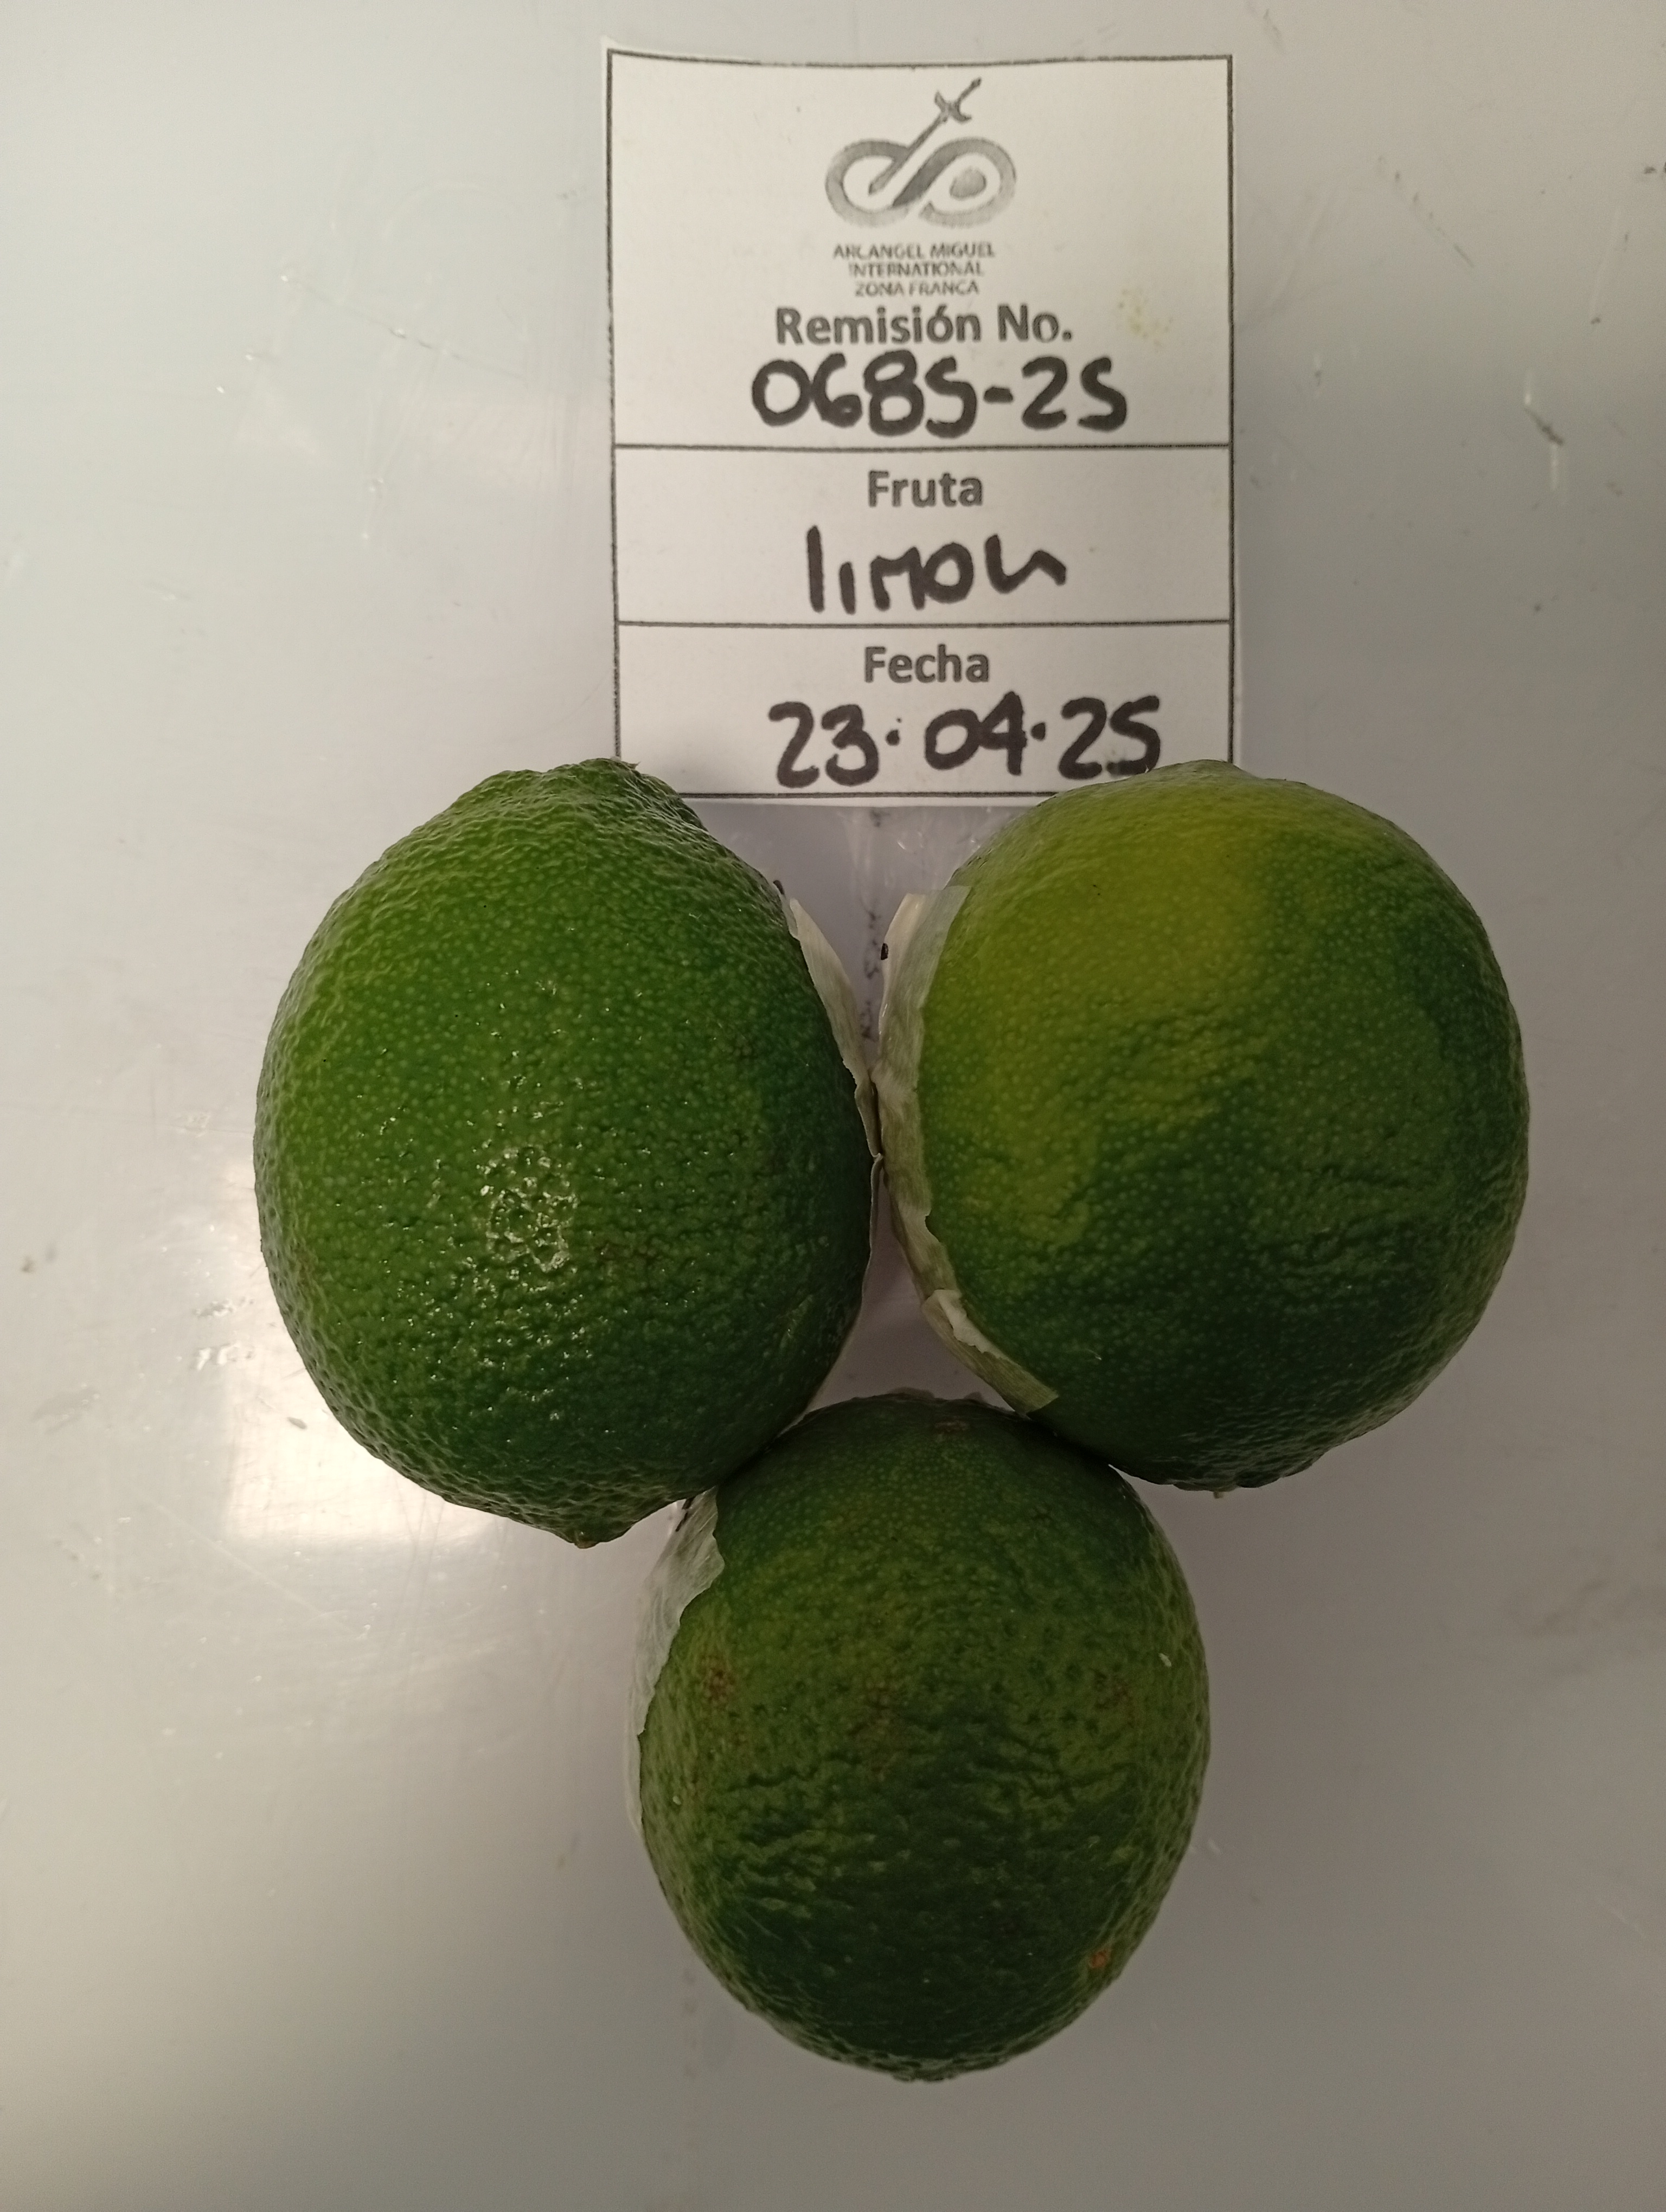 ARCANGEL MIGUEL
INTERNATIONAL
ZONA FRANCA
Remisión No.
0685-25
Fruta
limon
Fecha
23·04·25